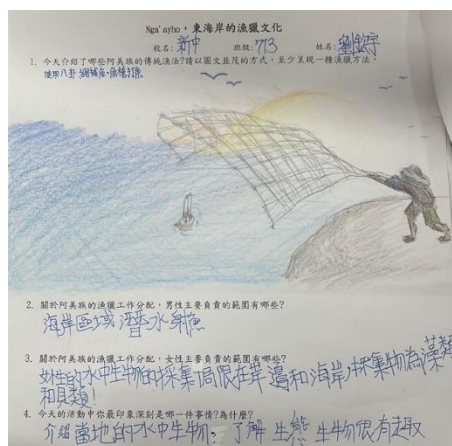 Nga'ayho，東海岸的漁獵文化
校名：新中 班級：713 姓名：劉
1. 今天介紹了哪些阿美族的傳統漁法？請以圖文並茂的方式，至少呈現一種漁獵方法。
使用八卦網捕魚
2. 關於阿美族的漁獵工作分配，男性主要負責的範圍有哪些？
海岸區域潛水射魚
3. 關於阿美族的漁獵工作分配，女性主要負責的範圍有哪些？
女性的水中生物的採集侷限在岸邊和海岸，採集物為藻類
和貝類！
4. 今天的活動中你最印象深刻是哪一件事情？為什麼？
介紹當地的水中生物：了解生態生物很有趣